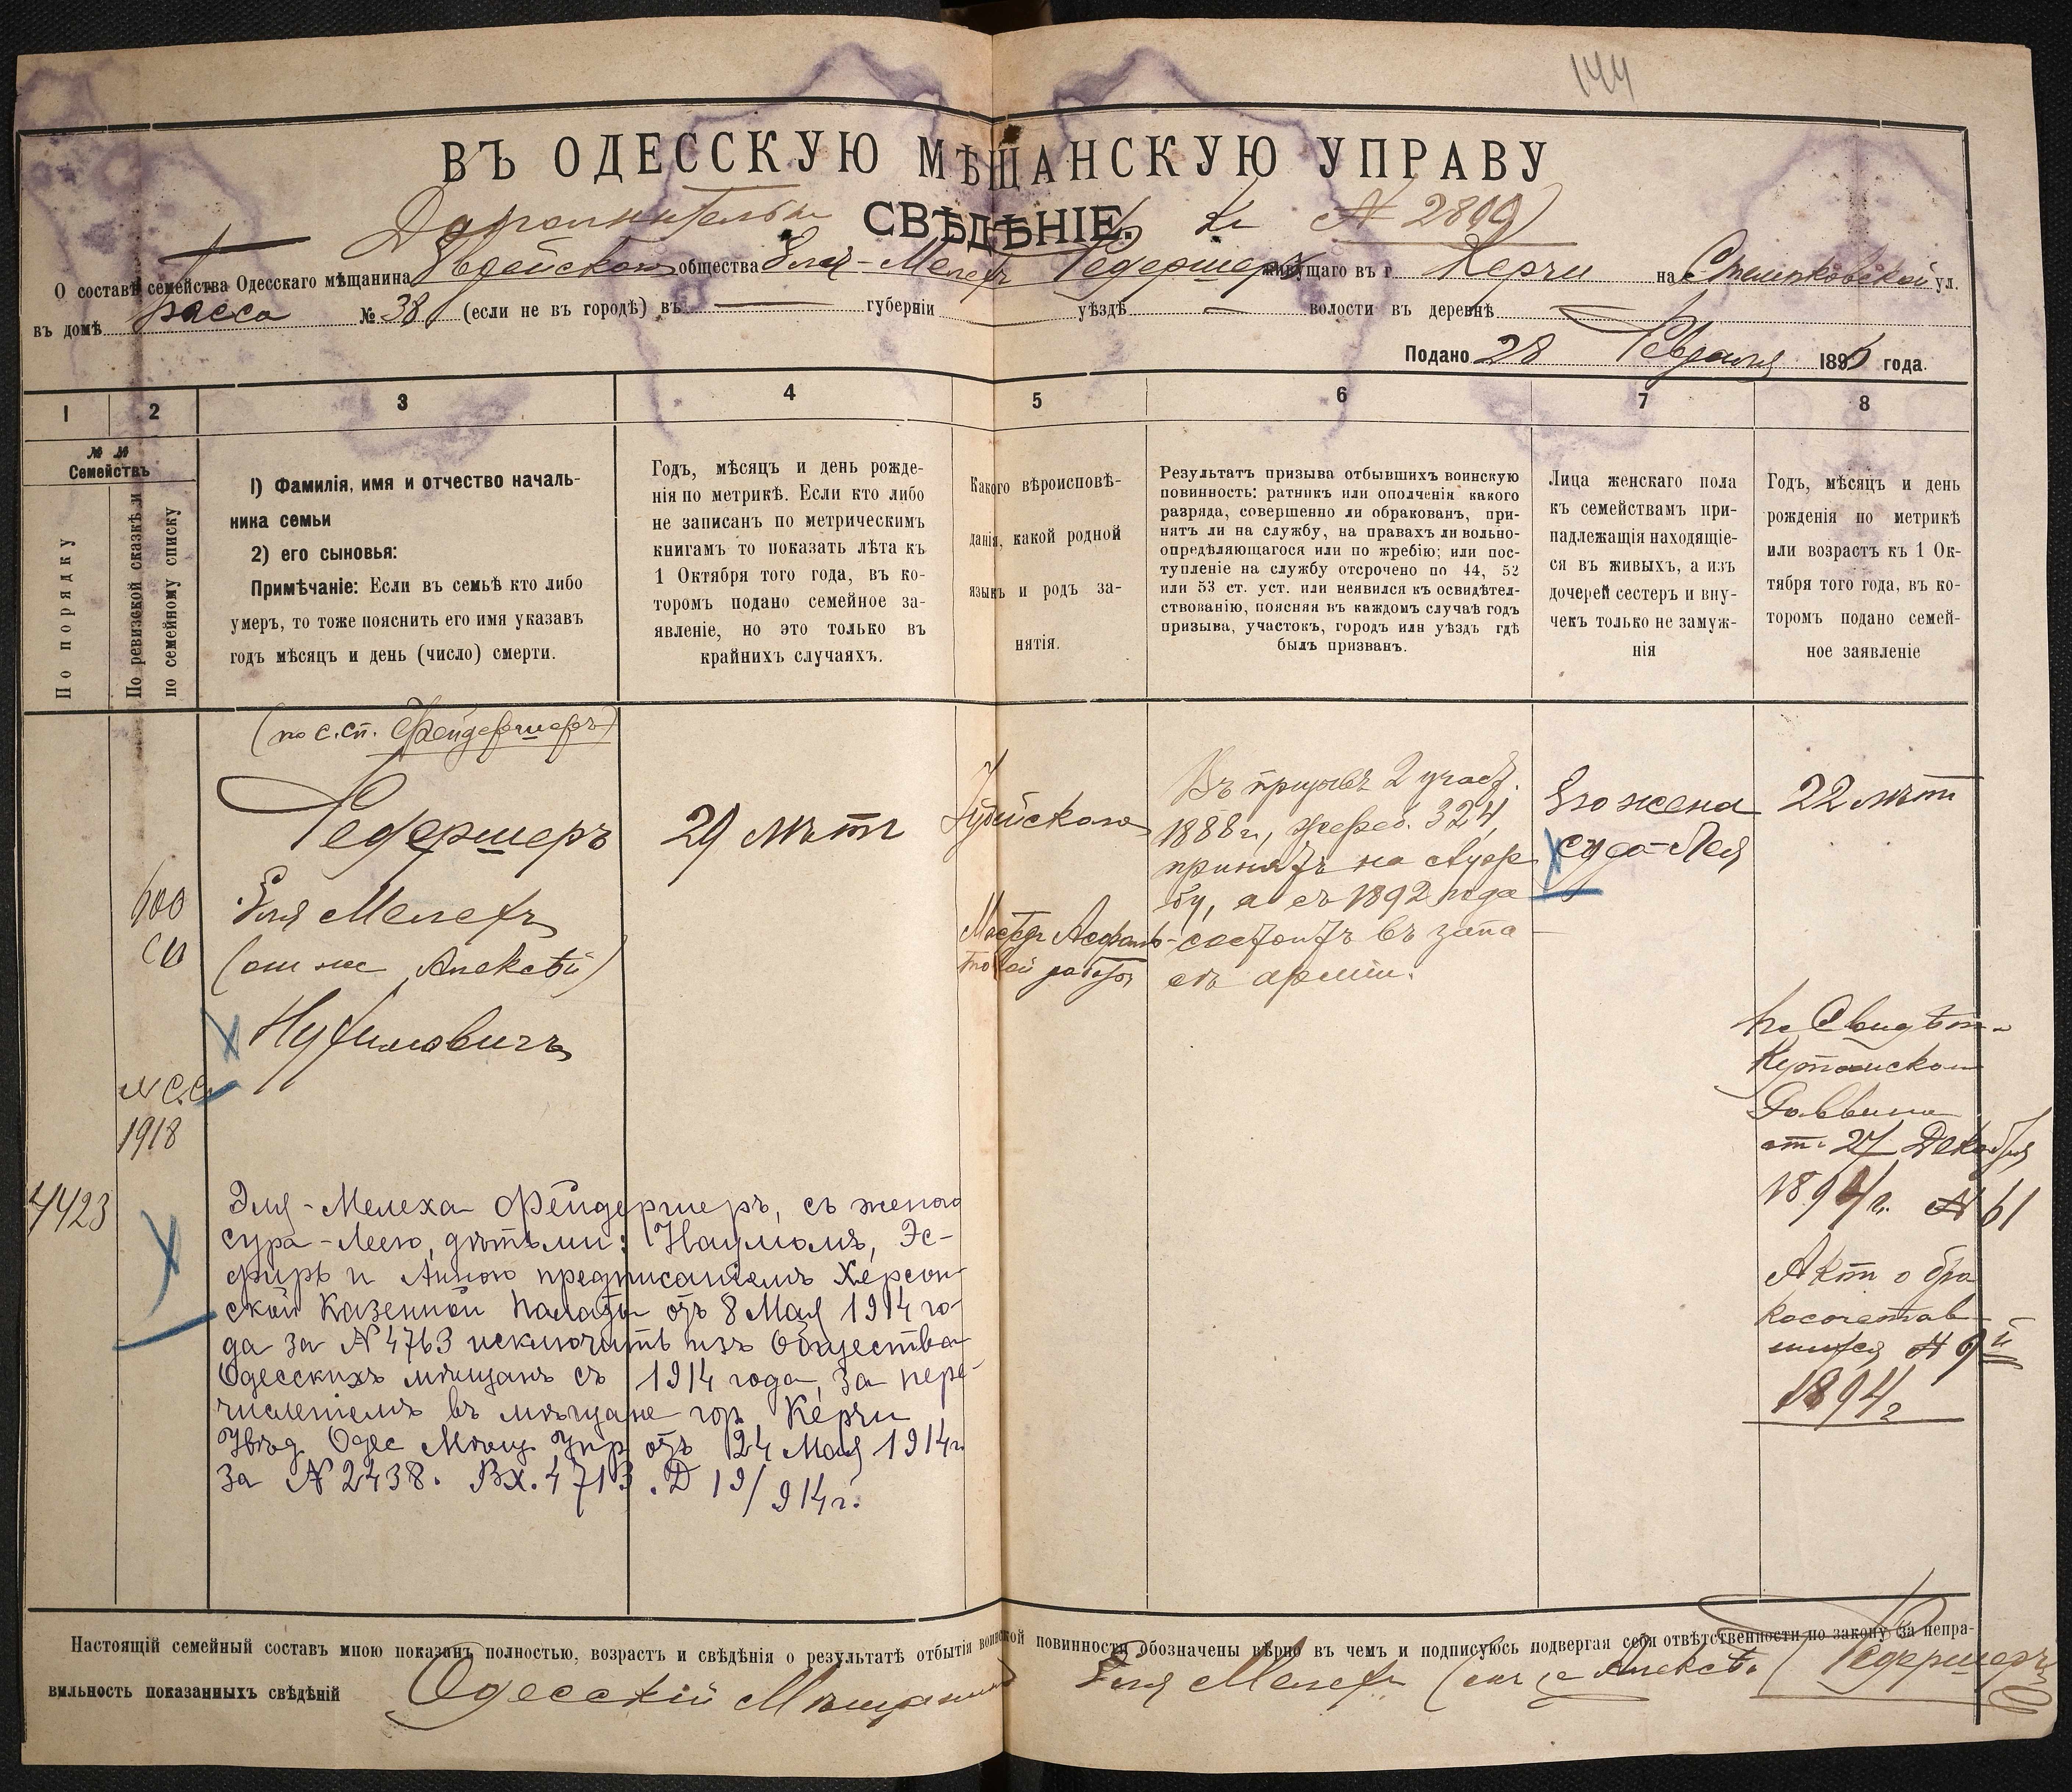 144
ВЪ ОДЕССКУЮ МѢЩАНСКУЮ УПРАВУ
СВѢДѢНІЕ.
къ № 2899
О составѣ семейства Одесскаго мѣщанина Еврейскаго общества Еля-Мелехъ Федершеръ живущаго въ г. Керчи на ул.
въ домѣ Расса № 38 (если не въ городѣ) въ губерніи уѣздѣ волости въ деревнѣ
Подано 28 Февраля 1895 года.
1 2 3 4 5 6 7 8
№ №
Семействъ
По порядку
По ревизской сказкѣ и
по семейному списку
1) Фамилія, имя и отчество началь-
ника семьи
2) его сыновья:
Примѣчаніе: Если въ семьѣ кто либо
умеръ, то тоже пояснить его имя указавъ
годъ мѣсяцъ и день (число) смерти.
Годъ, мѣсяцъ и день рожде-
нія по метрикѣ. Если кто либо
не записанъ по метрическимъ
книгамъ то показать лѣта къ
1 Октября того года, въ ко-
торомъ подано семейное за-
явленіе, но это только въ
крайнихъ случаяхъ.
Какого вѣроисповѣ-
данія, какой родной
языкъ и родъ за-
нятія.
Результатъ призыва отбывшихъ воинскую
повинность: ратникъ или ополченія какого
разряда, совершенно ли обракованъ, при-
нятъ ли на службу, на правахъ ли вольно-
опредѣляющагося или по жребію; или пос-
тупленіе на службу отсрочено по 44, 52
или 53 ст. уст. или неявился къ освидѣтел-
ствованію, поясняя въ каждомъ случаѣ годъ
призыва, участокъ, городъ или уѣздъ гдѣ
былъ призванъ.
Лица женскаго пола
къ семействамъ при-
надлежащія находящіе-
ся въ живыхъ, а изъ
дочерей сестеръ и вну-
чекъ только не замуж-
нія
Годъ, мѣсяцъ и день
рожденія по метрикѣ
или возрастъ къ 1 Ок-
тября того года, въ ко-
торомъ подано семей-
ное заявленіе
(по с.сп. Фейдершеръ)
Федершеръ
Еля Мелехъ
(онъ же Алексѣй)
Нухимовичъ
600
№ С.С.
1918
29 лѣтъ
Іудейскаго
Въ призывѣ 2 участ.
1888 г., жереб. 324,
принятъ на служ
бу, а съ 1892 года
состоитъ въ запа
съ арміи.
Его жена
Сура-Лея
22 лѣтъ
Кутаисскаго
Раввина
отъ 27 Декабря
1894 г. № 61
Актъ о бра
косочетав
шихся № 9й
1894 г
4423
Эля-Мелеха Фейдершеръ, съ женою
Сура-Леею, дѣтьми: Наумомъ, Эс-
фирь и Анною предписаніемъ Херсон-
ской Казенной Палаты отъ 8 Мая 1914 го-
да за № 4763 исключить изъ Общества
Одесскихъ мѣщанъ съ 1914 года, за пере-
численіемъ въ мѣщане гор. Керчи
Увѣд. Одес Мѣщ Упр отъ 24 Мая 1914г.
За № 2438. Вх. 4713. Д 19/914г.
Настоящій семейный составъ мною показанъ полностью, возрастъ и свѣдѣнія о результатѣ отбытія воинской повинности обозначены вѣрно въ чемъ и подписуюсь подвергая себя отвѣтственности по закону за непра-
вильность показанныхъ свѣдѣній Одесскій Мѣщанинъ Еля Мелехъ (онъ же Алексѣй) Федершеръ